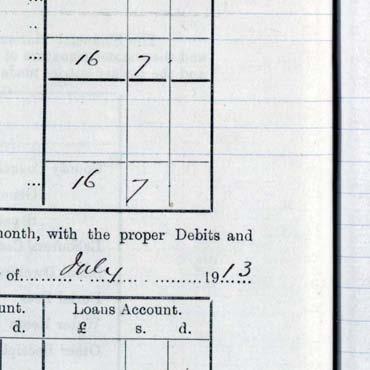 ... 16 7 .
... 16 7 .
month, with the proper Debits and
of........July...............1913
unt. Loans Account.
d. £ s. d.